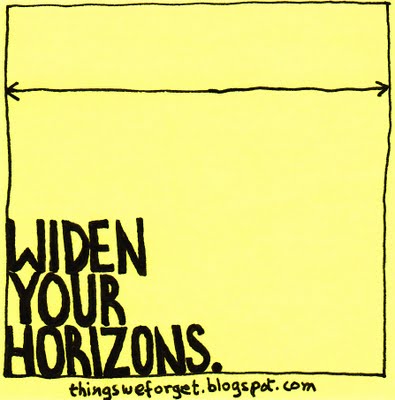 WIDEN
YOUR
HORIZONS.
thingsweforget.blogspot.com